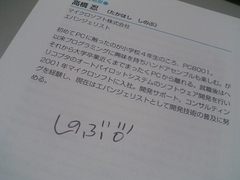 高橋 忍 (たかはし しのぶ)
マイクロソフト株式会社
エバンジェリスト
初めてPCに触ったのが小学校4年生のころ、PC8001。
以来プログラミングに興味を持ちハンドアセンブルも楽しむ。が
それから大学卒業近くまでまったくPCから離れる。就職後はヘ
リコプタのオートパイロットシステムのソフトウェア開発を行い
2001年マイクロソフトに入社。開発サポート、コンサルティン
グを経験し、現在はエバンジェリストとして開発技術の普及に努
める。
しのぶ